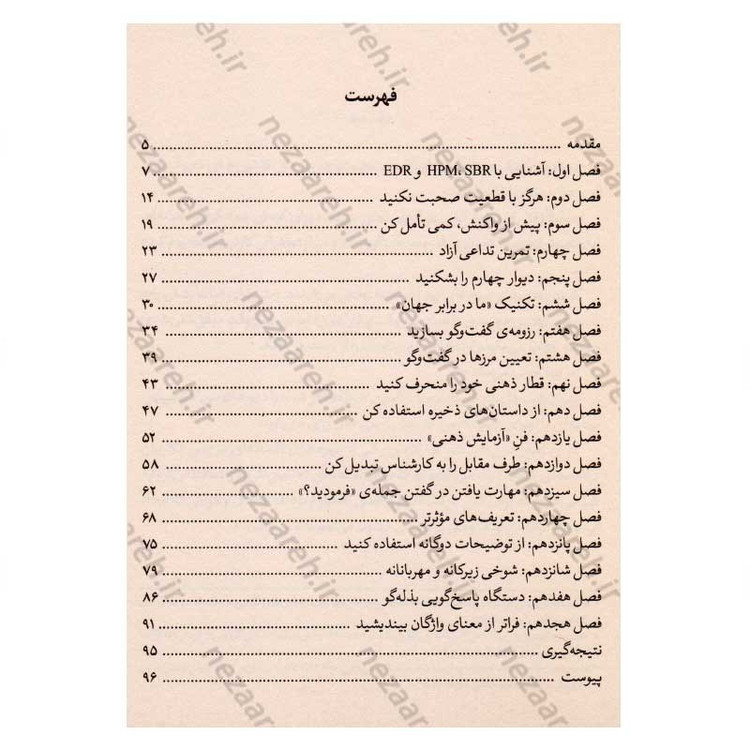 فهرست
مقدمه ........ ۵
فصل اول: آشنایی با HPM، SBR و EDR ........ ۷
فصل دوم: هرگز با قطعیت صحبت نکنید ........ ۱۴
فصل سوم: پیش از واکنش، کمی تأمل کن ........ ۱۹
فصل چهارم: تمرین تداعی آزاد ........ ۲۳
فصل پنجم: دیوار چهارم را بشکنید ........ ۲۷
فصل ششم: تکنیک «ما در برابر جهان» ........ ۳۰
فصل هفتم: رزومه‌ی گفت‌وگو بسازید ........ ۳۴
فصل هشتم: تعیین مرزها در گفت‌وگو ........ ۳۹
فصل نهم: قطار ذهنی خود را منحرف کنید ........ ۴۳
فصل دهم: از داستان‌های ذخیره استفاده کن ........ ۴۷
فصل یازدهم: فنِ «آزمایش ذهنی» ........ ۵۲
فصل دوازدهم: طرف مقابل را به کارشناس تبدیل کن ........ ۵۸
فصل سیزدهم: مهارت یافتن در گفتن جمله‌ی «فرمودید؟» ........ ۶۲
فصل چهاردهم: تعریف‌های مؤثرتر ........ ۶۸
فصل پانزدهم: از توضیحات دوگانه استفاده کنید ........ ۷۵
فصل شانزدهم: شوخی زیرکانه و مهربانانه ........ ۷۹
فصل هفدهم: دستگاه پاسخ‌گویی بذله‌گو ........ ۸۶
فصل هجدهم: فراتر از معنای واژگان بیندیشید ........ ۹۱
نتیجه‌گیری ........ ۹۵
پیوست ........ ۹۶
nezaareh.ir